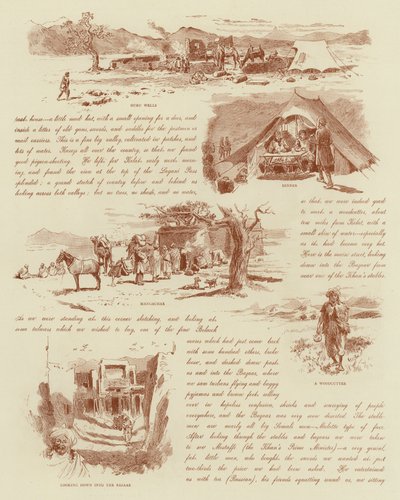 HURO WELLS
tank house—a little mud hut, with a small opening for a door, and
inside a litter of old guns, swords, and saddles for the postmen or
mail carriers. This is a fine big valley, cultivated in patches, and
lots of water. Kanya all over the country, so that we found
good pigeon-shooting. We left, for Kelat, early next morn-
ing, and found the view at the top of the Lagani Pass
splendid; a grand stretch of country before and behind us
looking across both valleys; but no trees, no shade, and no water,
DINNER
so that we were indeed glad
to meet a woodcutter, about
two miles from Kelat, with a
small skin of water—especially
as the had become very hot.
Here is the main street, looking
down into the Bazaar from
near one of the Khan's stables.
MANGACHAR
As we were standing at this corner sketching, and looking at
some relieves which we wished to buy, one of the fine Biluch
mares which had just come back
with some hundred others, broke
loose, and dashed down past
us and into the Bazaar, where
we saw turbans flying and baggy
pyjamas and brown feet rolling
over in hopeless confusion, shrieks and swearing of people
everywhere, and the Bazaar was very soon deserted. The stable-
men are nearly all big Somali men—Malottic type of face.
After looking through the stables and bazaars we were taken
to see Mustaffi (the Khan's Prime Minister)—a very genial,
fat little man, who bought the swords we wanted at just
two-thirds the price we had been asked. He entertained
us with tea (Russian), his friends squatting round us, we sitting
A WOODCUTTER
LOOKING DOWN INTO THE BAZAAR